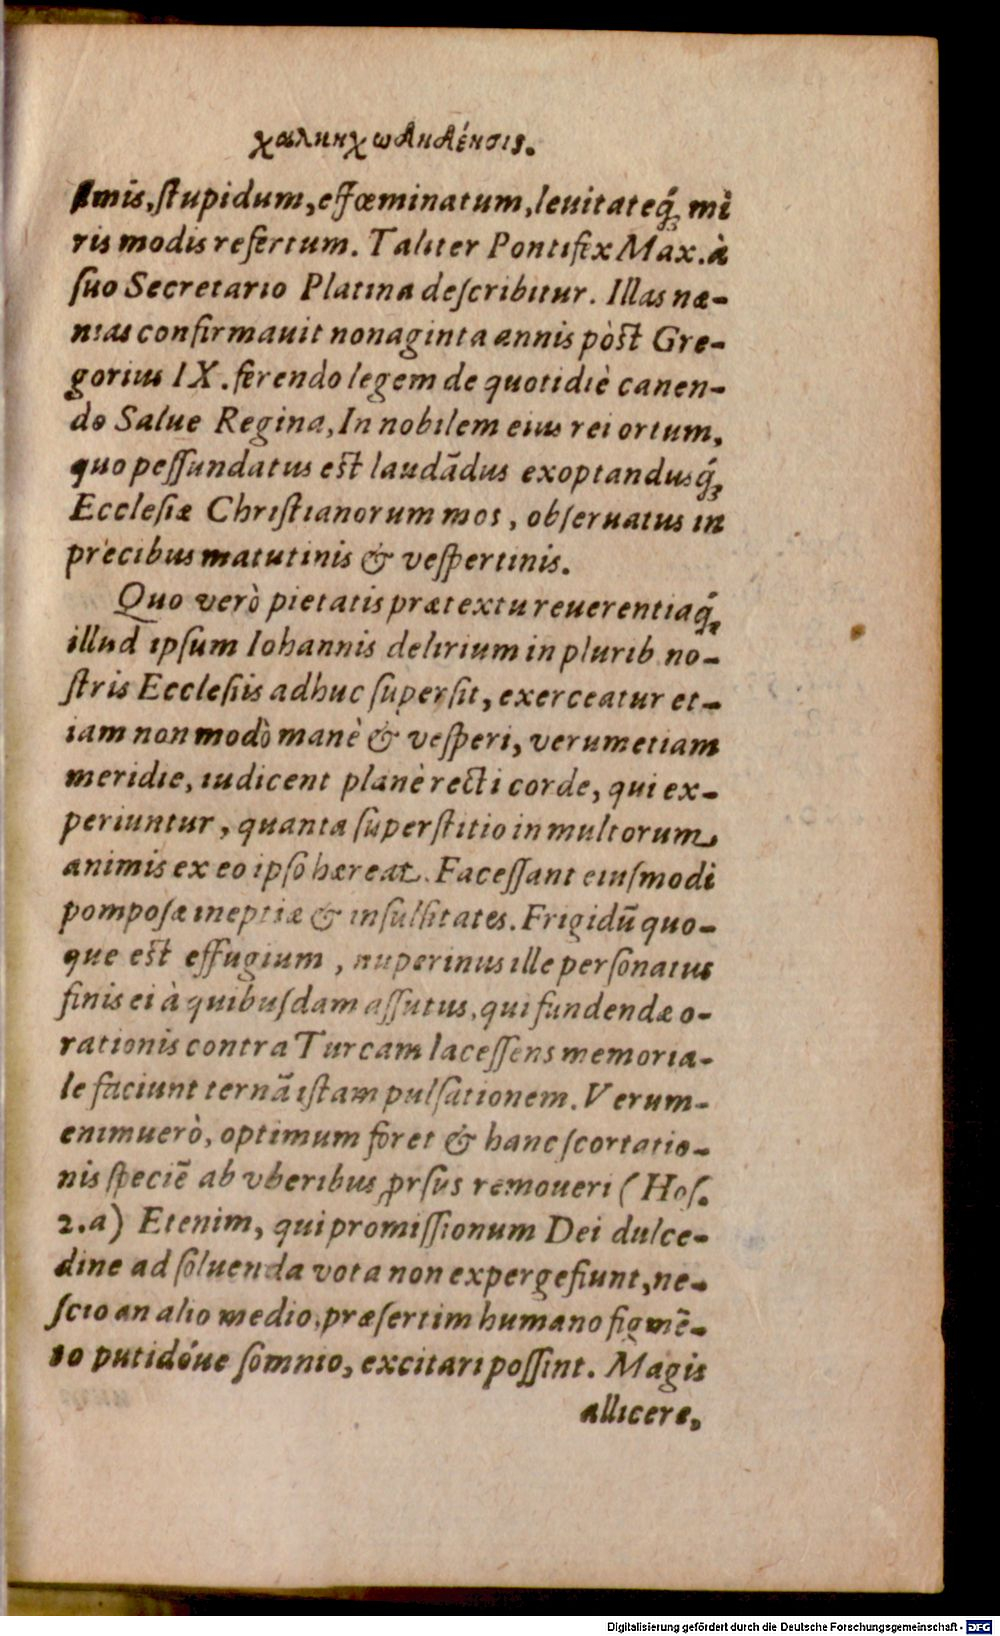 amis, ſtupidum, effœminatum, leuitateq́ꝫ mi
ris modis refertum. Taliter Pontifex Max. à
ſuo Secretario Platina deſcribitur. Illas næ-
nias confirmauit nonaginta annis pòſt Gre-
gorius IX. ferendo legem de quotidiè canen-
do Salue Regina, In nobilem eius rei ortum,
quo peſſundatus eſt laudādus exoptandusq́ꝫ
Eccleſiæ Chriſtianorum mos, obſeruatus in
precibus matutinis & veſpertinis.
Quo verò pietatis prætextu reuerentiaq́ꝫ
illud ipſum Iohannis delirium in plurib. no-
ſtris Eccleſiis adhuc ſuperſit, exerceatur et-
iam non modò manè & veſperi, verumetiam
meridie, iudicent planè recti corde, qui ex-
periuntur, quanta ſuperſtitio in multorum
animis ex eo ipſo hæreat. Faceſſant eiuſmodi
pompoſæ ineptiæ & inſulſitates. Frigidū quo-
que eſt effugium, nuperinus ille perſonatus
finis ei à quibuſdam aſſutus, qui fundendæ o-
rationis contra Turcam laceſſens memoria-
le faciunt ternā iſtam pulſationem. Verum-
enimuerò, optimum foret & hanc ſcortatio-
nis ſpeciē ab vberibus ꝓrſus remoueri (Hoſ.
2.a) Etenim, qui promiſſionum Dei dulce-
dine ad ſoluenda vota non expergefiunt, ne-
ſcio an alio medio, præſertim humano figmē-
to putidóue ſomnio, excitari poſſint. Magis
allicere,
Digitalisierung gefördert durch die Deutsche Forschungsgemeinschaft - DFG